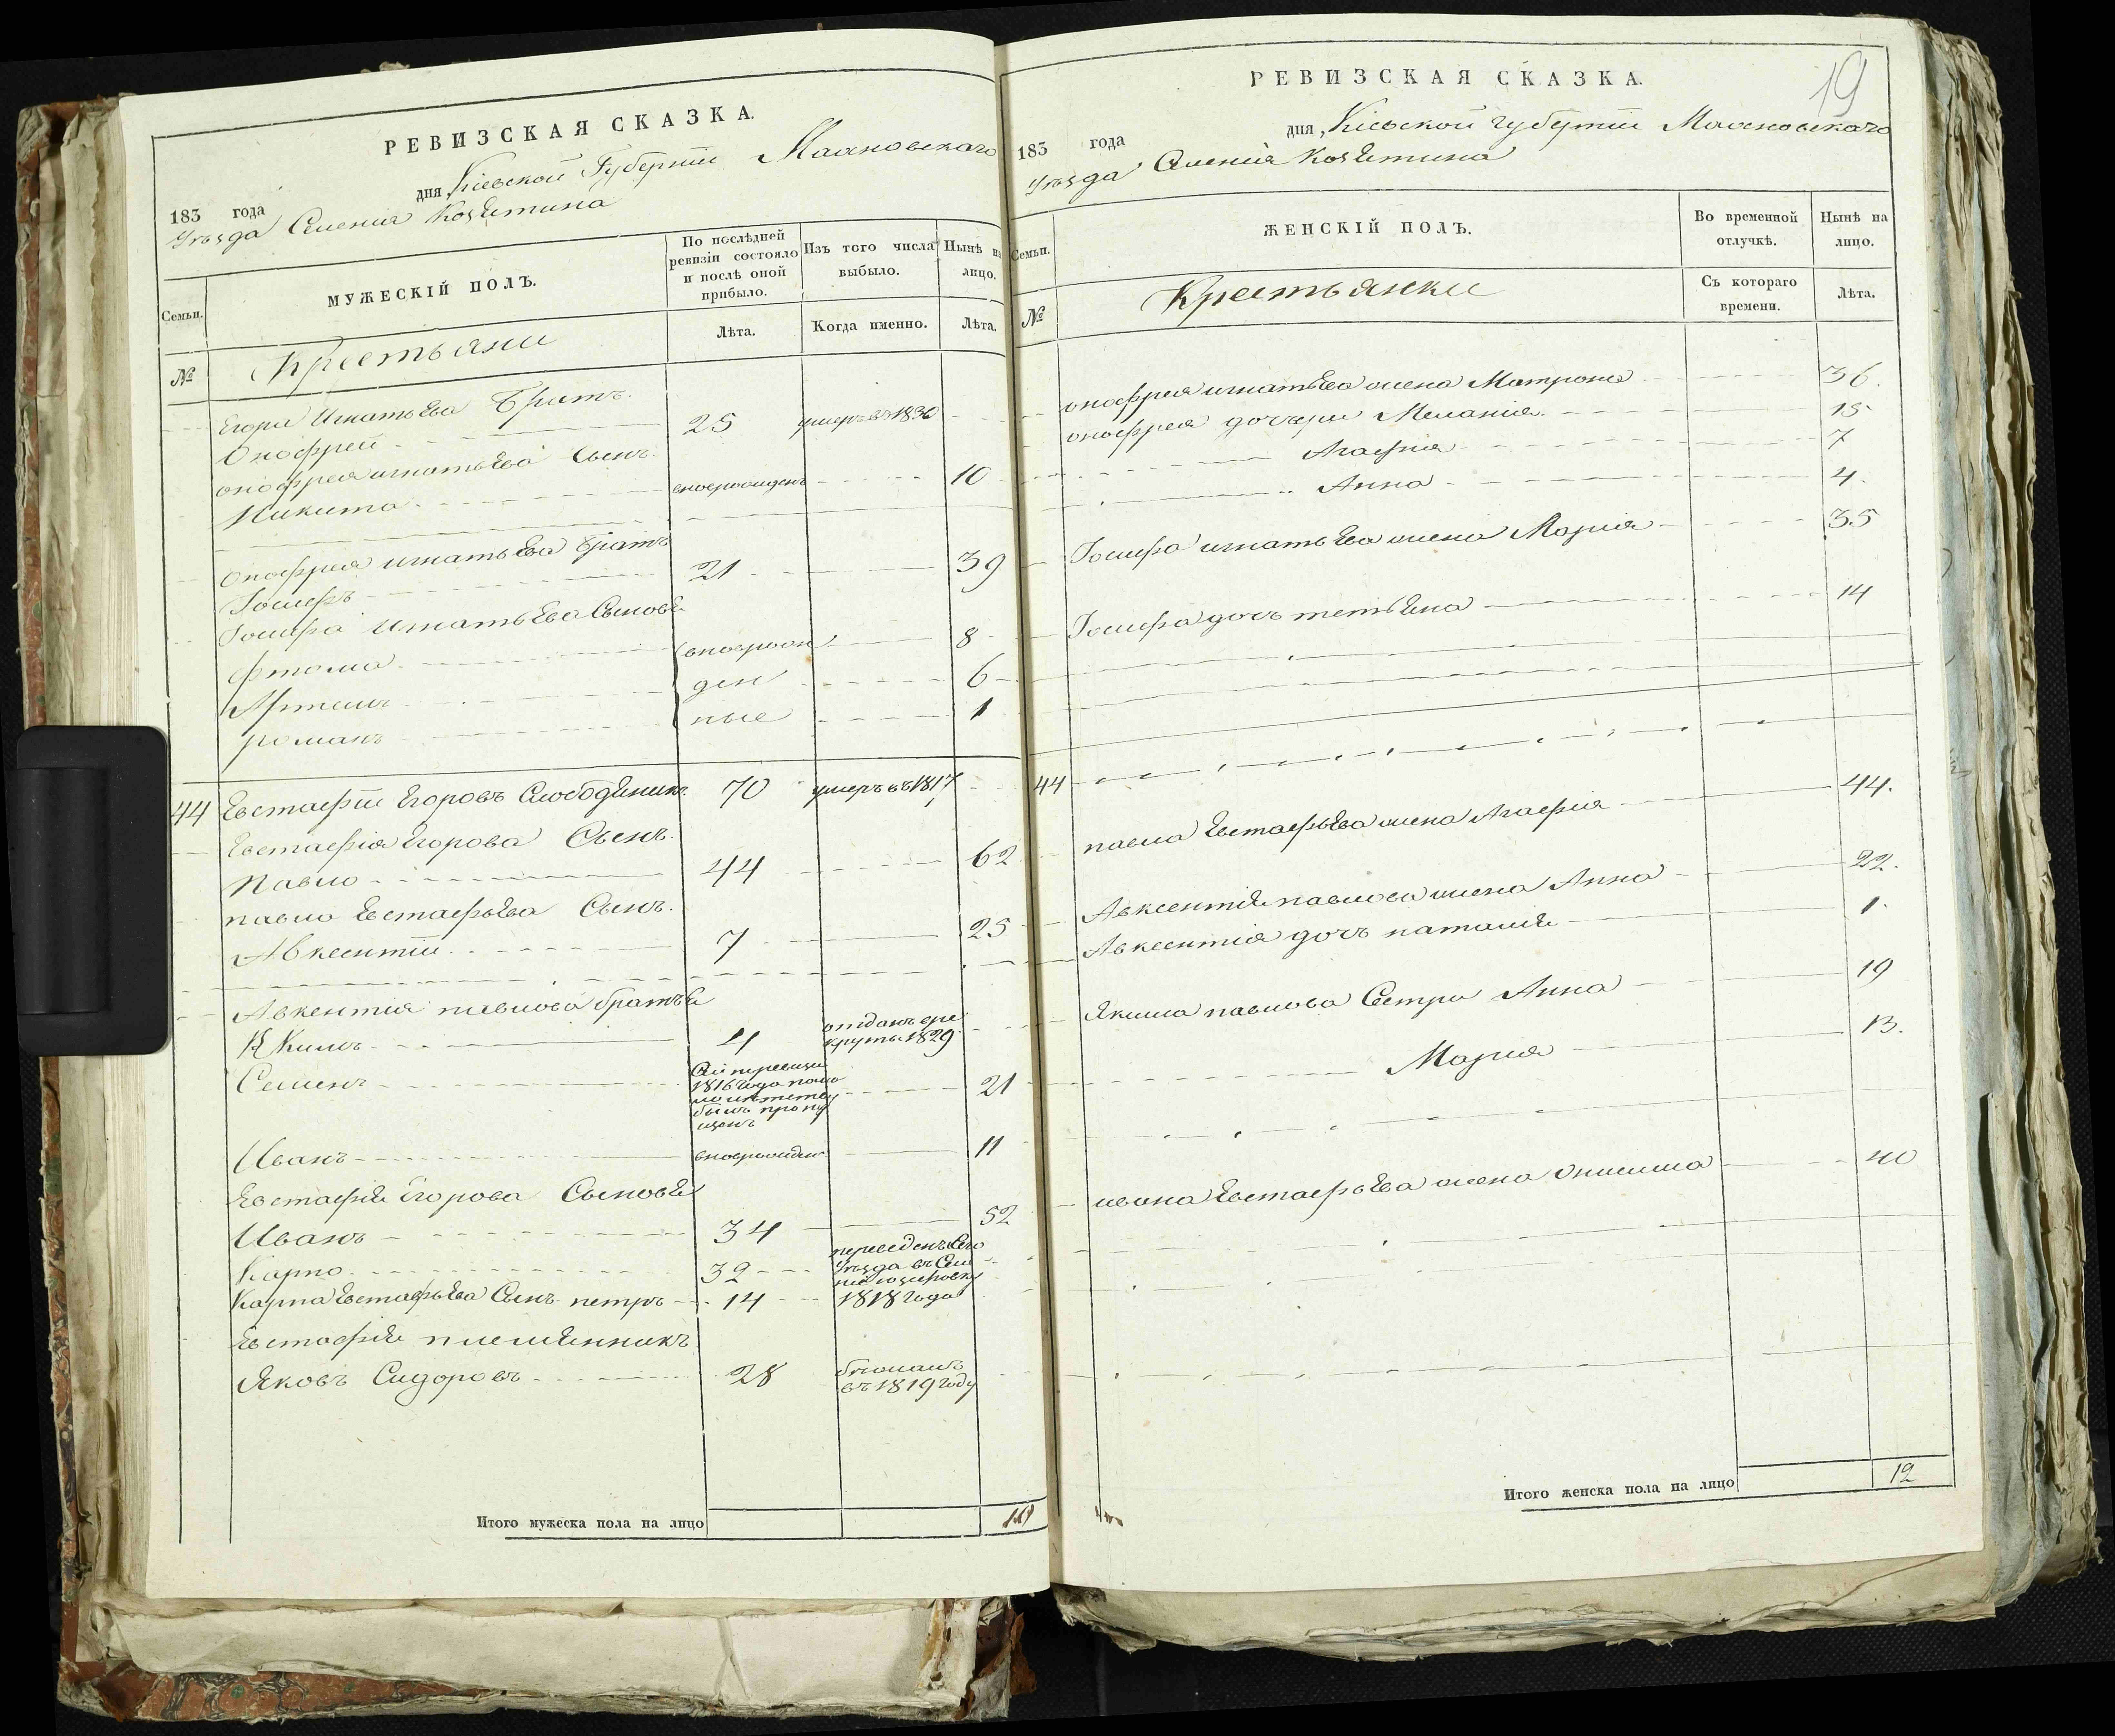 РЕВИЗСКАЯ СКАЗКА.
183 года дня Кіевской Губерніи Махновскаго
Уѣзда Селенія Козятина
Семьи.
МУЖЕСКІЙ ПОЛЪ.
По послѣдней ревизіи состояло и послѣ оной прибыло.
Изъ того числа выбыло.
Нынѣ на лицо.
№
Крестьяни
Лѣта.
Когда именно.
Лѣта.
Егора Игнатьева Братъ.
Онофрей 25 умеръ въ 1830
онофрея игнатьева Сынъ
Никита новорожденъ 10
Онофрея игнатьева братъ
Іосифъ 21 39
Іосифа Игнатьева Сыновья
Фтома новорож 8
Артемъ ден 6
романъ ные 1
44 Евстафiй Егоровъ Слободяникъ 70 умеръ въ 1817
Евстафія Егорова Сынъ.
Павло 44 62
павла Евстафьева Сынъ.
Авксентій 7 25
Авксентия павлова братья
Якимъ 4 отданъ вре
круты 1829
Семенъ 21
1816 года
былъ пропу
щенъ
Иванъ новорожден 11
Евстафія Егорова Сыновья
Иванъ 34 52
Карпо 32
Уѣзда въ Селе
Карпа Евстафьева Сынъ петръ 14 1818 года
Евстафія племянникъ
Яковъ Сидоровъ 28 бѣжалъ
въ 1819 году
Итого мужеска пола на лицо 10
19
РЕВИЗСКАЯ СКАЗКА.
183 года дня Кіевской губерніи Махновскаго
Уѣзда Селенія Козятина
Семьи.
ЖЕНСКІЙ ПОЛЪ.
Во временной отлучкѣ.
Нынѣ на лицо.
№
Крестьянки
Съ котораго времени.
Лѣта.
онофрея игнатьева жена Матрона 36.
онофрея дочери Меланія 15
Агафия 7
Анна 4.
Іосифа игнатьева жена Мария 35
Іосифа дочь тетьяна 14
44
павла Евстафьева жена Агафия 44.
Авксентія павлова жена Анна 22.
Авксентія дочь наталія 1.
Якима павлова Сестри Анна 19
Мария 13.
ивана Евстафьева жена Онисима 40
Итого женска пола на лицо 12